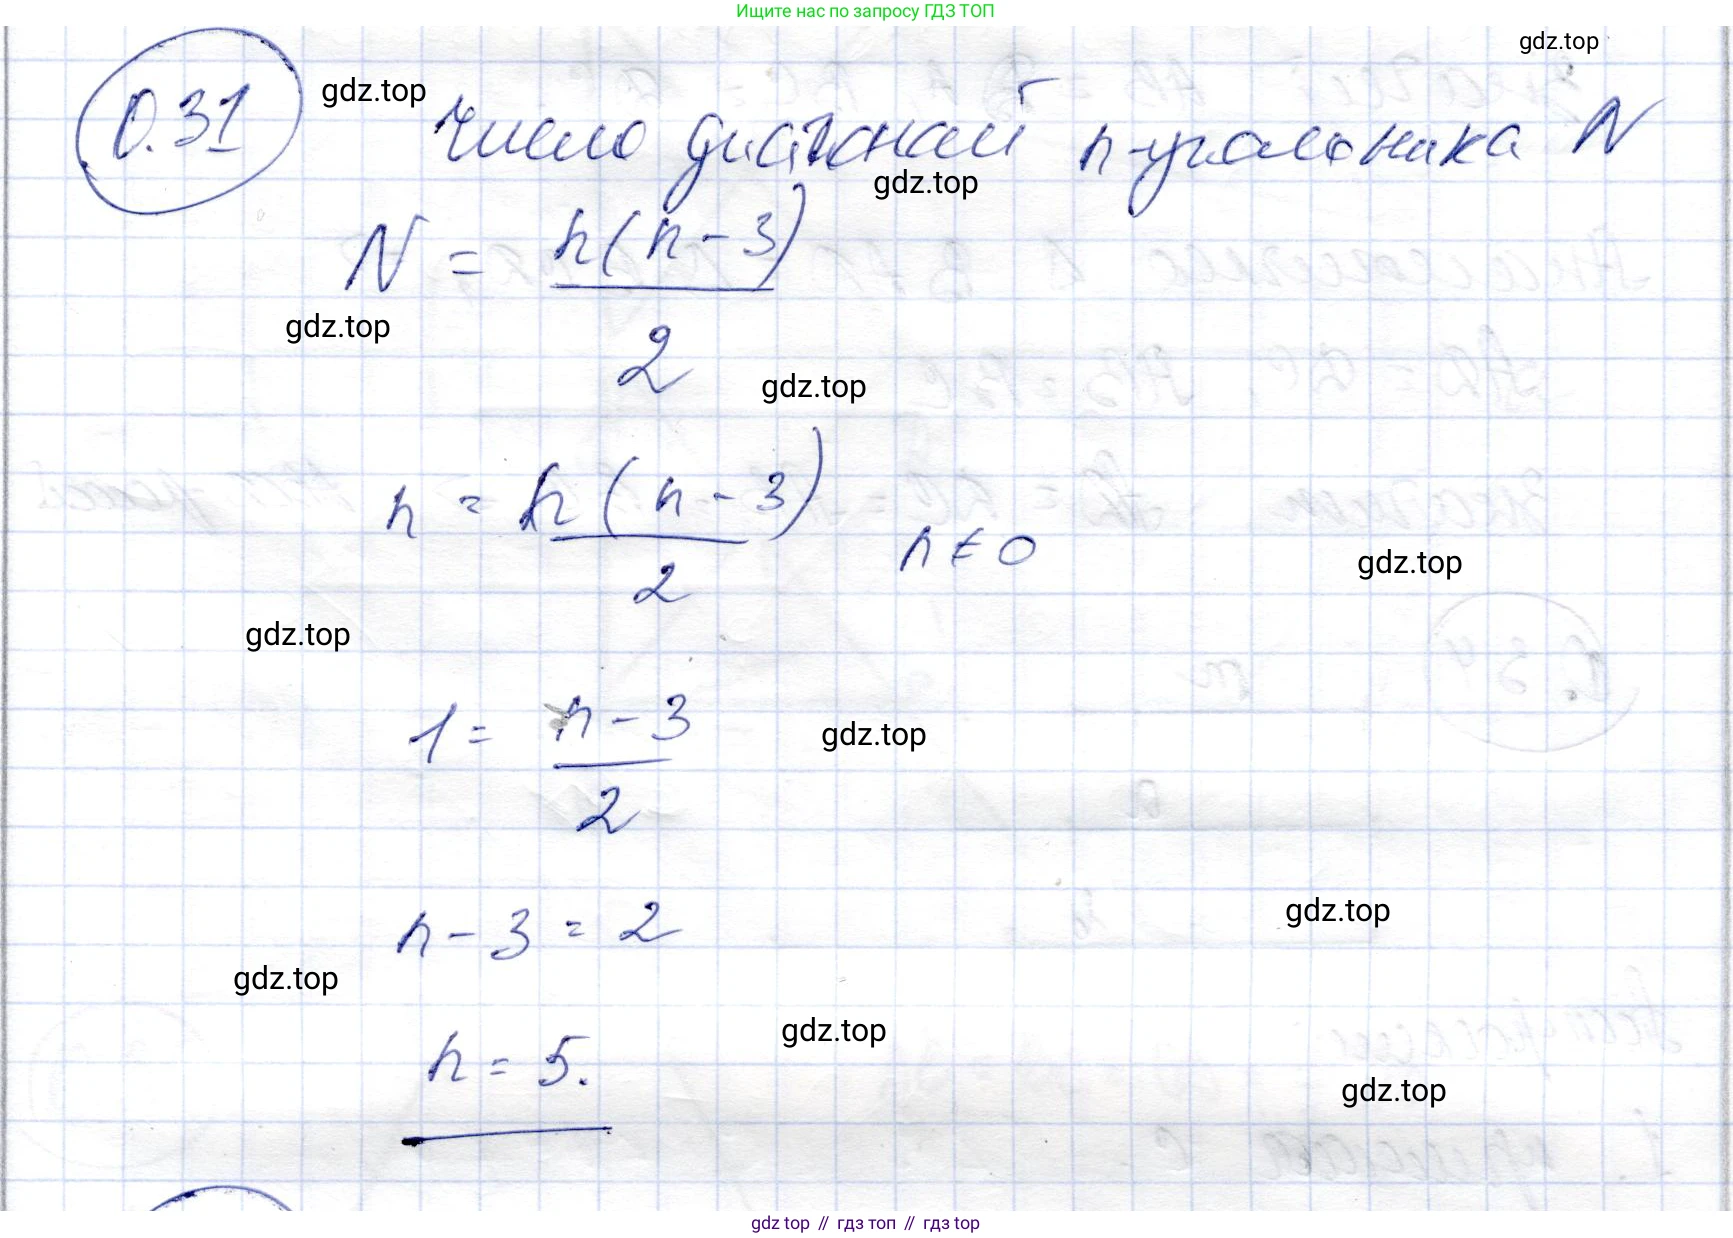 Ищите нас по запросу ГДЗ ТОП
gdz.top
0.31 gdz.top Число диагоналей n-угольника N
gdz.top
N = n(n-3)
gdz.top
2
gdz.top
n = n(n-3)
n ≠ 0
gdz.top
2
gdz.top
1 = n-3
gdz.top
2
n-3 = 2
gdz.top
gdz.top
gdz.top
n = 5.
gdz.top
gdz top // гдз топ // гдз top